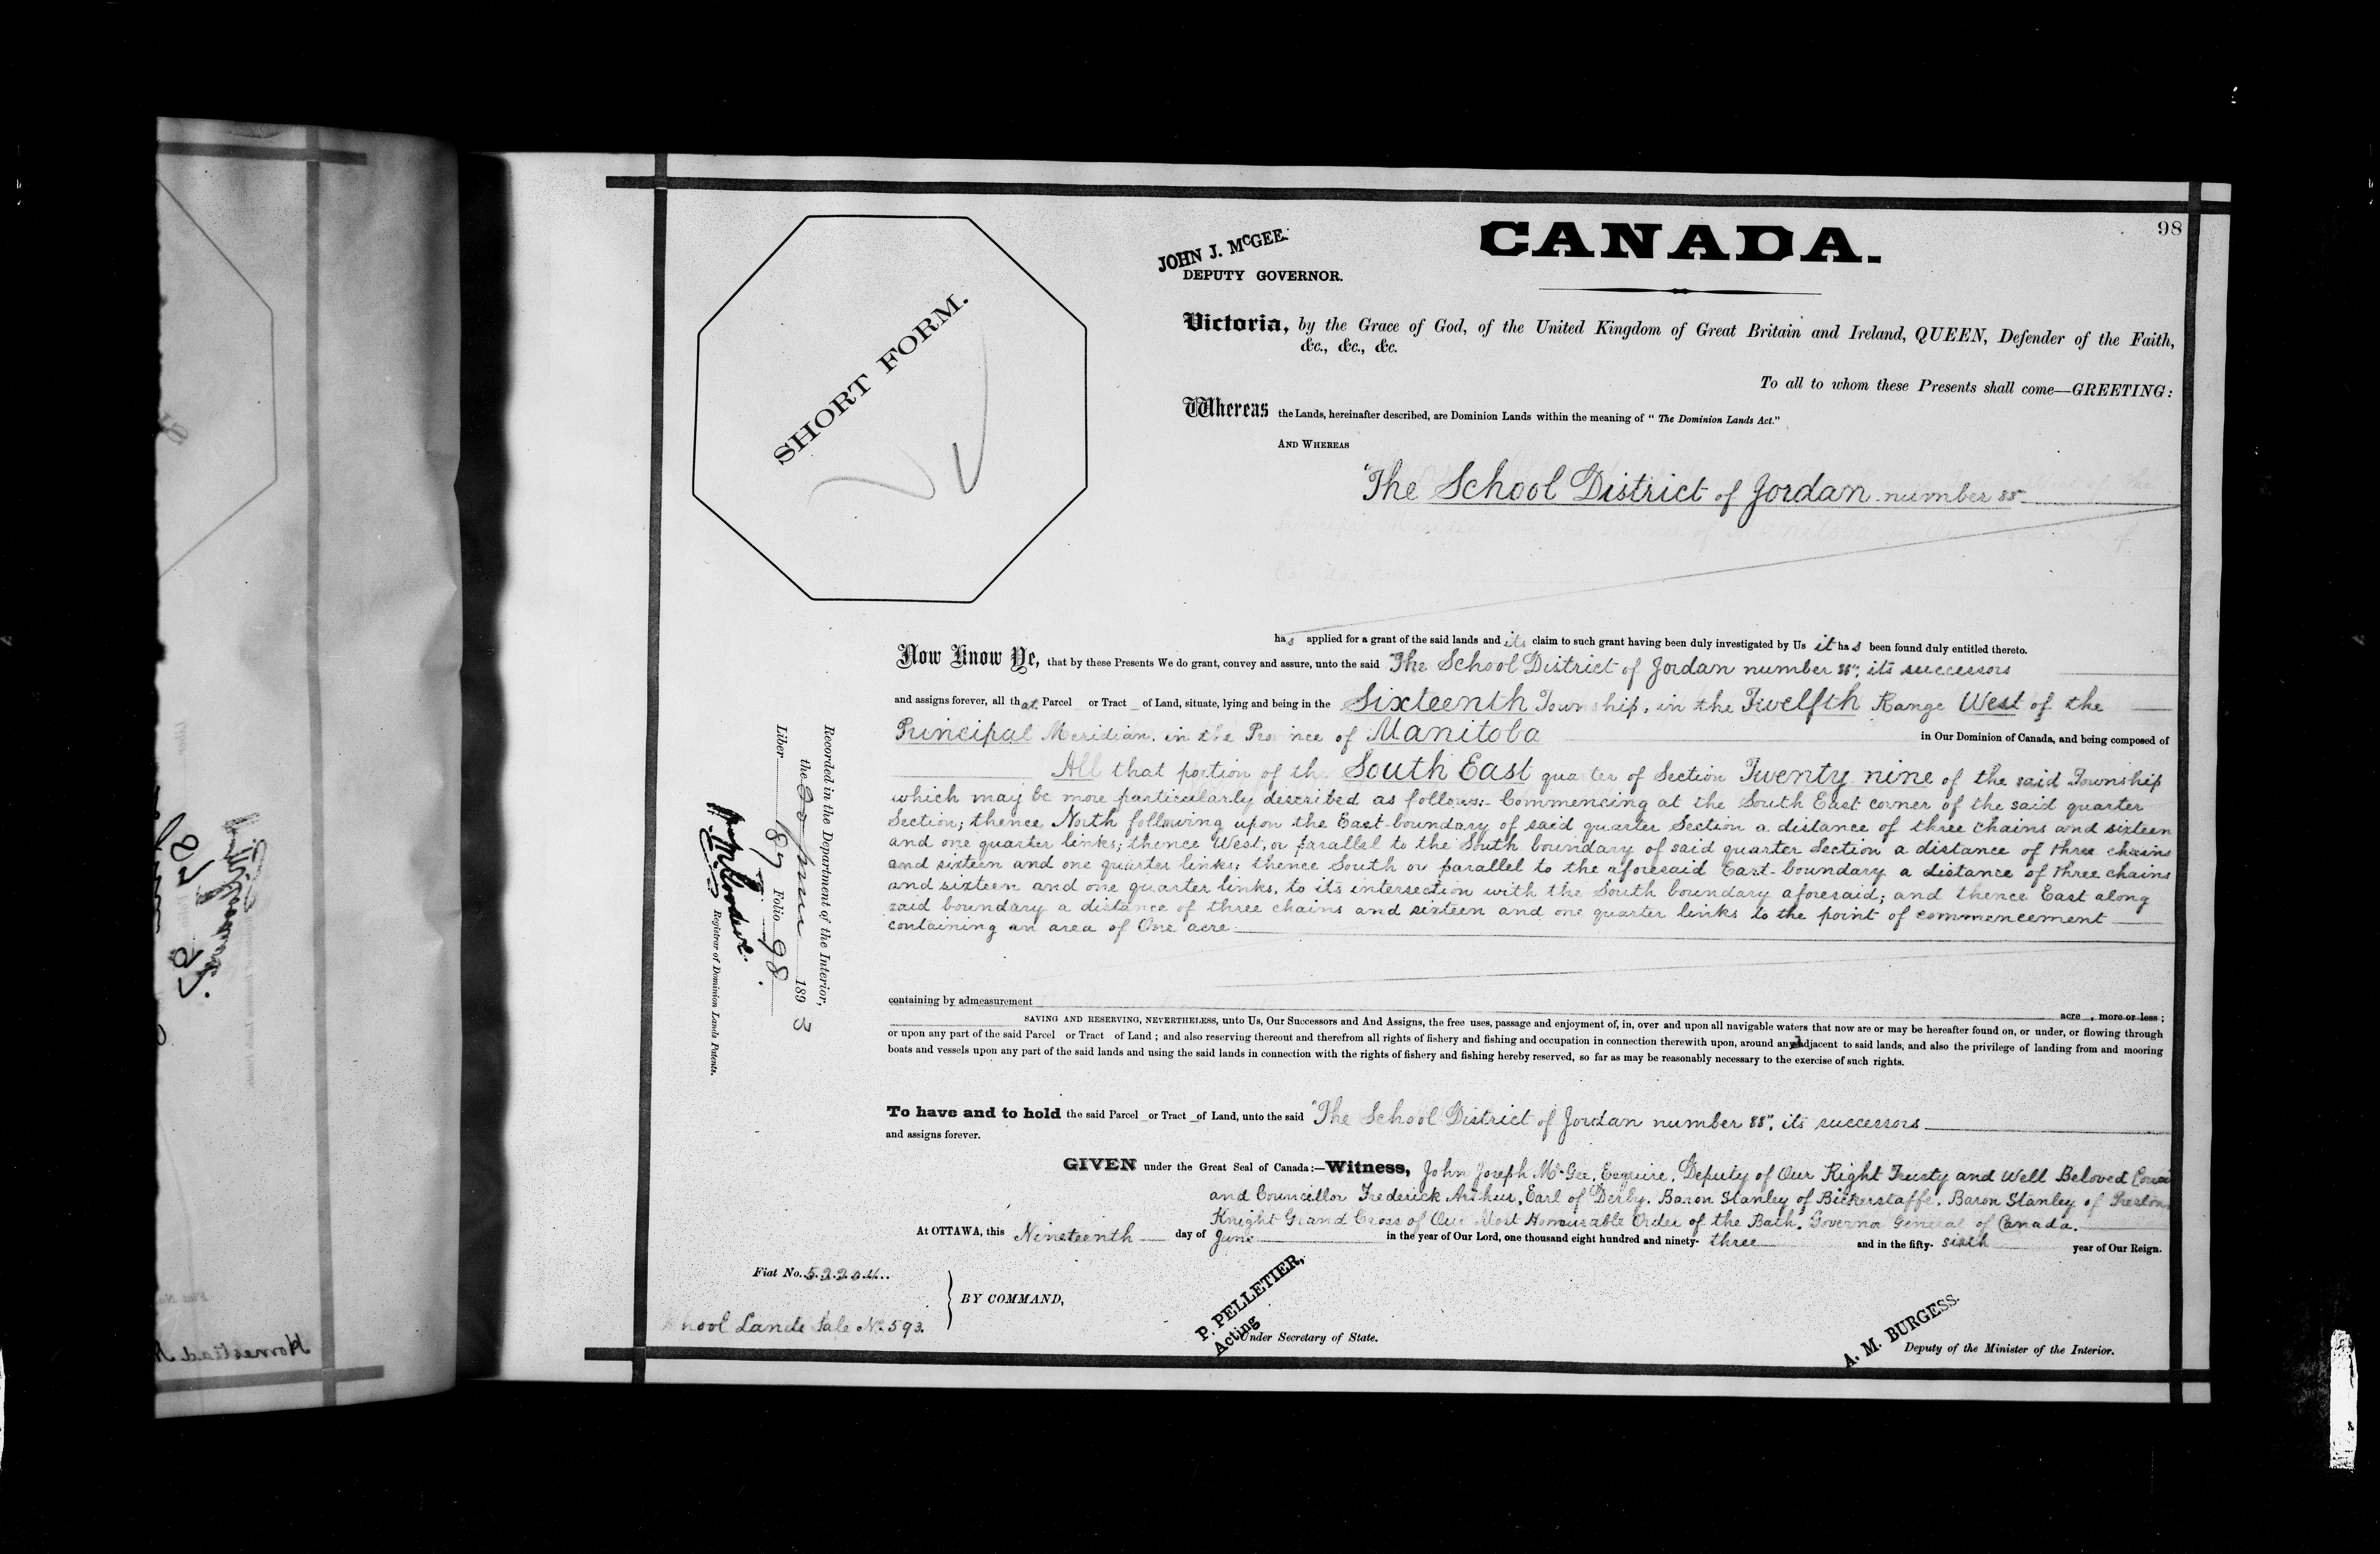 98
JOHN J. McGEE.
DEPUTY GOVERNOR.
CANADA.
SHORT FORM.
Victoria, by the Grace of God, of the United Kingdom of Great Britain and Ireland, QUEEN, Defender of the Faith,
&c., &c., &c.
To all to whom these Presents shall come—GREETING:
Whereas the Lands, hereinafter described, are Dominion Lands within the meaning of " The Dominion Lands Act."
AND WHEREAS
"The School District of Jordan number 88"
has applied for a grant of the said lands and its claim to such grant having been duly investigated by Us it has been found duly entitled thereto.
Now Know Ye, that by these Presents We do grant, convey and assure, unto the said "The School District of Jordan number 88", its successors
and assigns forever, all that Parcel or Tract of Land, situate, lying and being in the Sixteenth Township, in the Twelfth Range West of the
Principal Meridian, in the Province of Manitoba in Our Dominion of Canada, and being composed of
All that portion of the South East quarter of Section Twenty nine of the said Township
which may be more particularly described as follows:- Commencing at the South East corner of the said quarter
Section; thence North following upon the East boundary of said quarter Section a distance of three chains and sixteen
and one quarter links; thence West, or parallel to the South boundary of said quarter Section a distance of three chains
and sixteen and one quarter links; thence South or parallel to the aforesaid East boundary a distance of three chains
and sixteen and one quarter links, to its intersection with the South boundary aforesaid; and thence East along
said boundary a distance of three chains and sixteen and one quarter links to the point of commencement
containing an area of One acre
containing by admeasurement acre , more or less ;
SAVING AND RESERVING, NEVERTHELESS, unto Us, Our Successors and And Assigns, the free uses, passage and enjoyment of, in, over and upon all navigable waters that now are or may be hereafter found on, or under, or flowing through
or upon any part of the said Parcel or Tract of Land ; and also reserving thereout and therefrom all rights of fishery and fishing and occupation in connection therewith upon, around and adjacent to said lands, and also the privilege of landing from and mooring
boats and vessels upon any part of the said lands and using the said lands in connection with the rights of fishery and fishing hereby reserved, so far as may be reasonably necessary to the exercise of such rights.
To have and to hold the said Parcel or Tract of Land, unto the said "The School District of Jordan number 88", its successors
and assigns forever.
GIVEN under the Great Seal of Canada:—Witness, John Joseph McGee, Esquire, Deputy of Our Right Trusty and Well Beloved
and Councillor Frederick Arthur, Earl of Derby, Baron Stanley of Bickerstaffe, Baron Stanley of Preston
Knight Grand Cross of Our Most Honourable Order of the Bath, Governor General of Canada.
At OTTAWA, this Nineteenth day of June in the year of Our Lord, one thousand eight hundred and ninety- three and in the fifty- sixth year of Our Reign.
Fiat No. 52204
School Lands Sale No 593.
BY COMMAND,
P. PELLETIER,
Acting
Under Secretary of State.
A. M. BURGESS.
Deputy of the Minister of the Interior.
Recorded in the Department of the Interior,
the 20 June 1893
Liber 87 Folio 98.
Registrar of Dominion Lands Patents.
Homestead